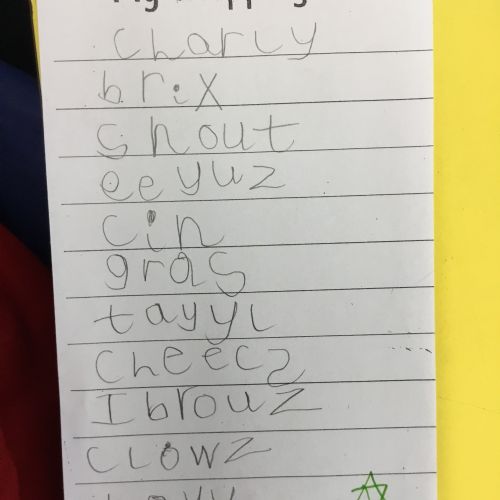 charly
brix
shout
eeyuz
cin
gras
tayyl
cheecz
I brouz
clowz